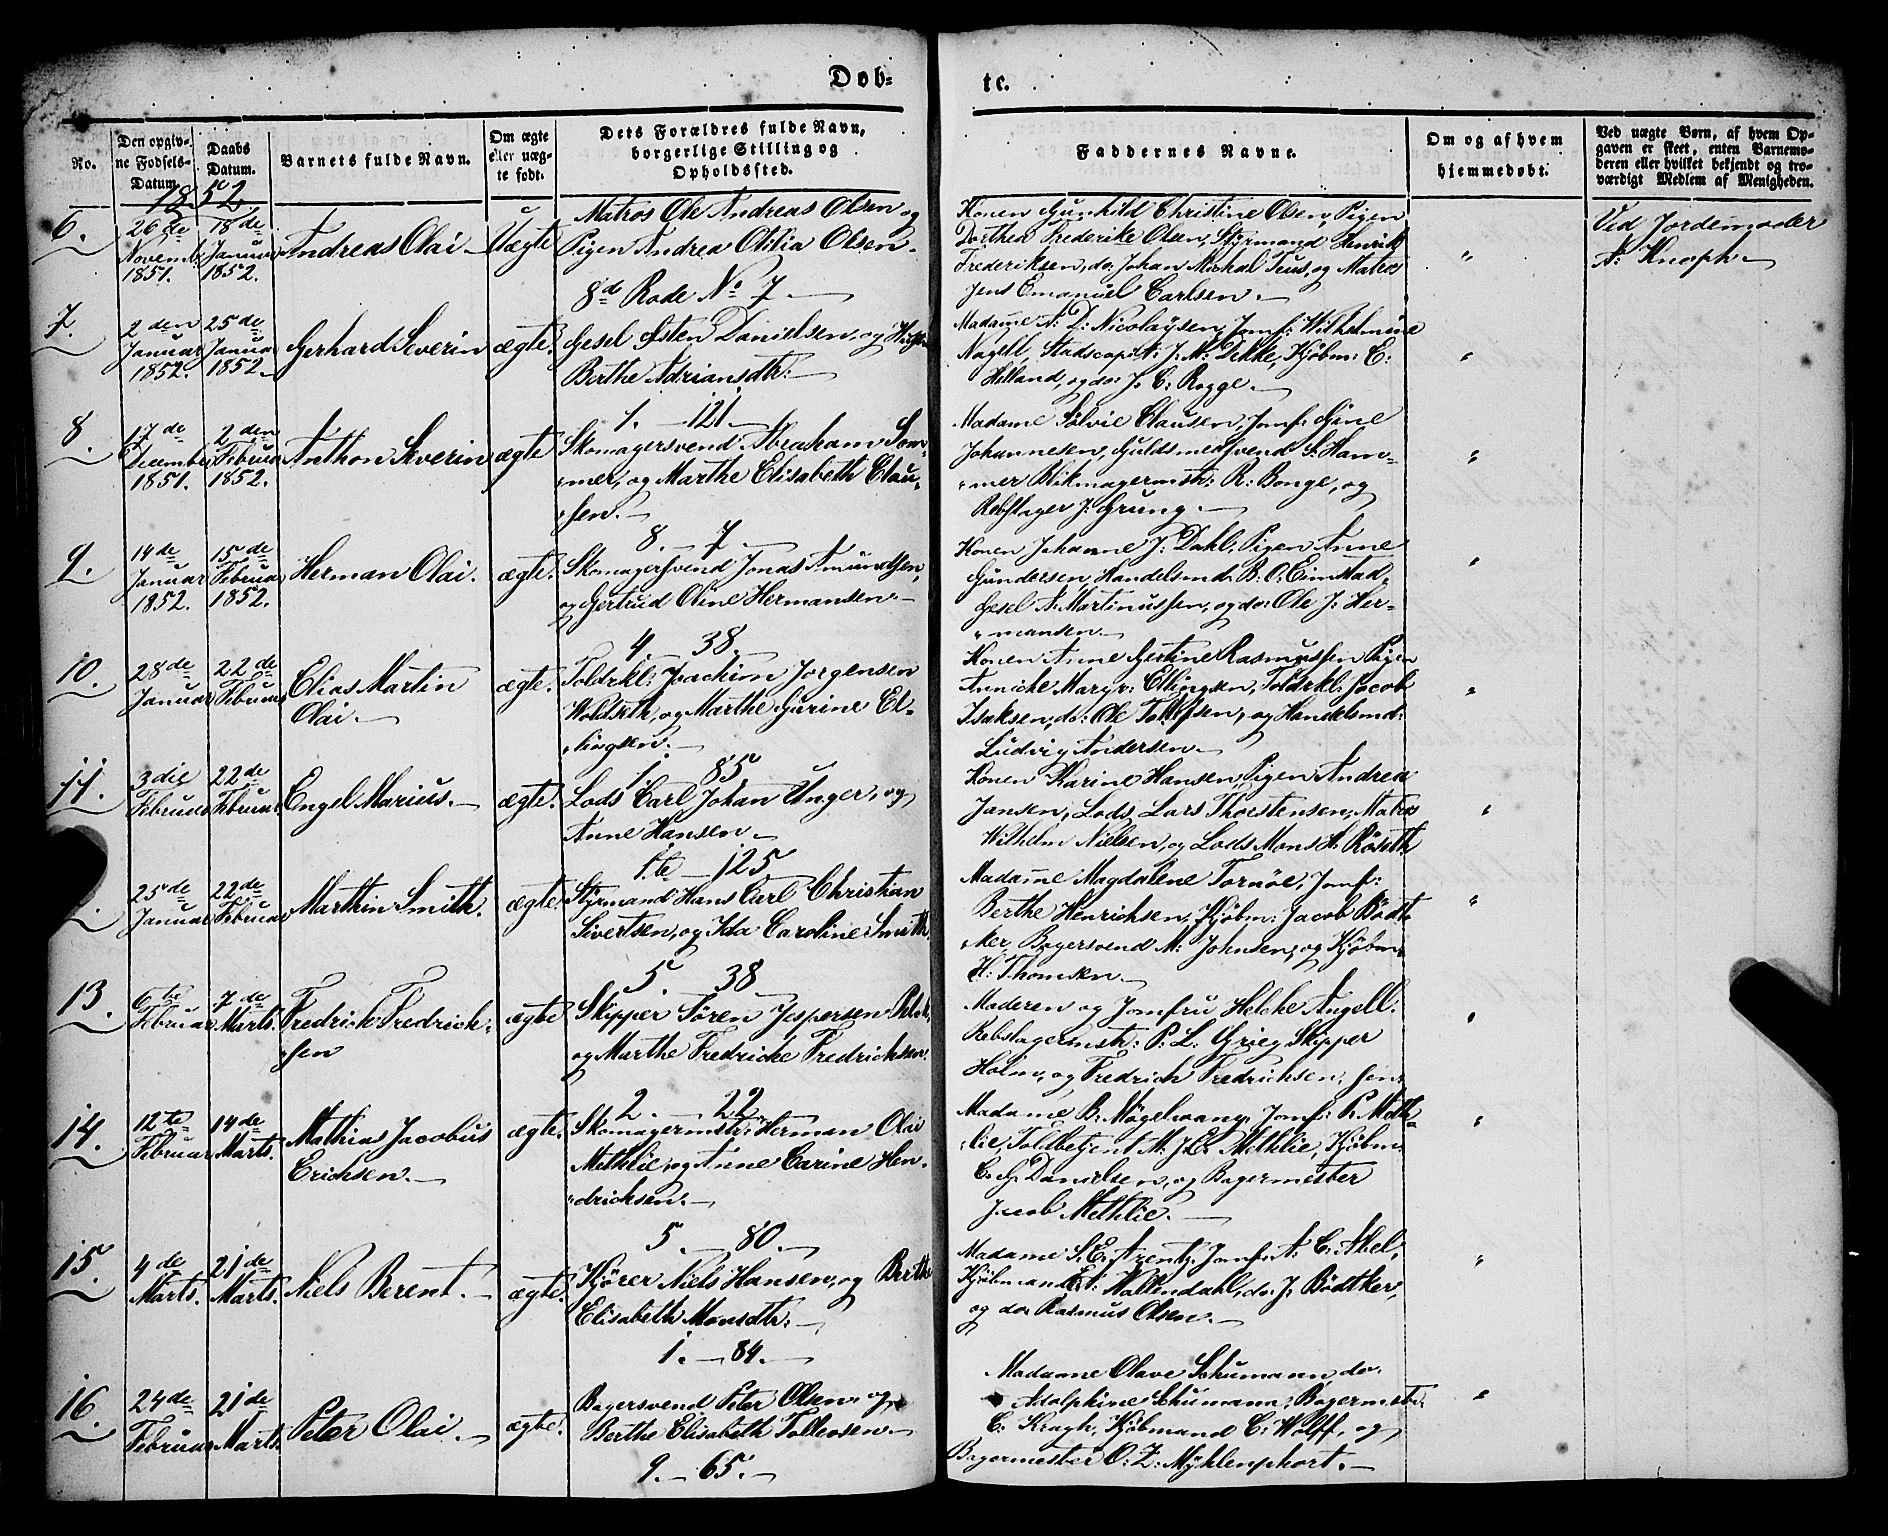 Døb-
te.
No.
Den opgiv-
ne Fødsels-
Datum.
Daabs
Datum.
Barnets fulde Navn.
Om ægte
eller uæg-
te født.
Dets Forældres fulde Navn,
borgerlige Stilling og
Opholdssted.
Faddernes Navne.
Om og af hvem
hjemmedøbt.
Ved uægte Børn, af hvem Op-
gaven er skeet, enten Barnemo-
deren eller hvilket bekjendt og tro-
værdigt Medlem af Menigheden.
1852.
6.
26de
Novemb:
1851.
18de
Januar
1852.
Andreas Olai.
Uægte
Matros Ole Andreas Olsen og
Pigen Andrea Otilia Olsen.
8de Rode No 7
Konen Gunhild Christine Olsen, Pigen
Dorthea Frederike Olsen, Styrmand Henrik
Frederiksen, do: Johan Michal Tuus, og Matros
Jens Emanuel Carlsen.
"
Ved Jordemoder
A: Knoph.
7.
2den
Januar
1852.
25de
Januar
1852.
Gerhard Severin
ægte.
Gesel Østen Danielsen, og
Berthe Adriansdtr.
1. 121.
Madame A: D: Nicolaysen, Jomf: Wilhelmine
Nagel, Stadscapt: J: M: Dekke, Kjøbm: C:
Helland, og do: J. C: Rogge.
"
8.
17de
December
1851.
2den
Februar
1852.
Anthon Severin
ægte
Skomagersvend Abraham Som-
mer, og Marthe Elisabeth Clau-
sen.
8. 7
Madame Sølvie Clausen, Jomf: Gine
Johannesen, Guldsmedsvend S: Ham-
mer Blikmagermstr: R: Bonge, og
Rebslager J: Grung.
"
9.
14de
Januar
1852.
15de
Februar
1852.
Herman Olai.
ægte.
Skomagersvend Jonas Amundsen,
og Gertrud Oline Hermansen.
4. 38.
Konen Johanne J: Dahl, Pigen Anne
Gundersen, Handelsmd. B: O: Eimstad,
Gesel A: Martinussen, og do: Ole J: Her-
mansen.
"
10.
28de
Januar
22de
Februar
Elias Martin
Olai.
ægte.
Toldrkl: Joachim Jørgensen
Woldseth, og Marthe Gurine El-
lingsen.
1. 85.
Konen Anne Gertine Rasmussen Pigen
Annicke Margr: Ellingsen, Toldrkl: Jacob
Isaksen, do: Ole Tollefsen, og Handelsmd:
Ludvig Andersen.
"
11.
3die
Februar
22de
Februar.
Engel Marius.
ægte.
Lods Carl Johan Unger, og
Anne Hansen.
16 125
Konen Karine Hansen, Pigen Andrea
Jansen, Lods Lars Thorstensen, Matros
Wilhelm Nielsen, og Lods Mons H. Röseth
"
25de
Januar
22de
Februar
Marthin Smith.
ægte.
Styrmand Hans Carl Christian
Sivertsen, og Ida Caroline Smith
5. 38
Madame Magdalene Tornöe, Jomf:
Berthe Henrichsen, Kjøbm: Jacob Bödt-
ker, Bagersvend M: Johnsen, og Kjøbm:
H: Thomsen.
"
13.
6te
Februar
7de
Marts.
Fredrick Fredrich-
sen
ægte
Skipper Søren Jespersen
og Marthe Fredricke Fredrichsen.
2. 22.
Moderen og Jomfru Helche Angell.
Rebslagermstr: P: L: Grieg Skipper
Holm, og Fredrich Fredrichsen, sen.
"
14.
12te
Februar
14de
Marts.
Mathias Jacobus
Erichsen.
ægte.
Skomagermstr: Herman Olai
Methlie, og Anne Carine Hen-
drichsen.
5. 80.
Madame B: Møgelvang, Jomf: P: Meth-
lie, Toldbetjent M: J: E: Methlie, Kjøbm:
C: G: Danielsen, og Bagermester
Jacob Methlie.
"
15.
4de
Marts.
21de
Marts.
Niels Berent.
ægte.
Kjører Niels Hansen, og Berthe
Elisabeth Monsdtr:
1. 84.
Madame S: E: Arentz, Jomf: A: C: Abel,
Kjøbmand A: Wallendahl, do: J. Bödtker,
og do: Rasmus Olsen.
"
16.
24de
Februar
21de
Marts.
Peter Olai.
ægte.
Bagersvend Peter Olsen, og
Berthe Elisabeth Tolleosen.
9. 65.
Madame Olave Schumann, do.
Adolphine Schumann, Bagermester
C: Kragh, Kjøbmand C: Wolff, og
Bagermester O: Z: Myhlenphort.
"